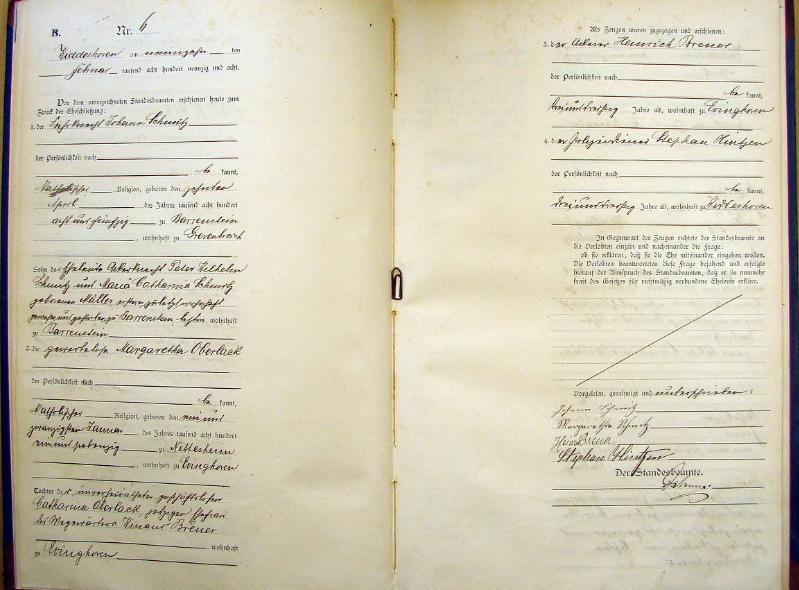 B. Nr. 6
am neunzehn ten
Februar tausend acht hundert neunzig und acht.
Vor dem unterzeichneten Standesbeamten erschienen heute zum
Zweck der Eheschließung:
1. der Johann Schmitz
der Persönlichkeit nach
be kannt,
katholischer Religion, geboren den zehnten
April des Jahres tausend acht hundert
acht und fünfzig zu Barrenstein
, wohnhaft zu Grevenbroich
Sohn des Ackerknecht Peter Wilhelm
Schmitz und Maria Catharina Schmitz
geborenen Müller
zu Barrenstein wohnhaft
zu Barrenstein
2. die gewerbelose Margaretha Oberlack
der Persönlichkeit nach
be kannt,
katholischer Religion, geboren den ein und
zwanzigsten Januar des Jahres tausend acht hundert
ein und siebenzig zu Nettesheim
, wohnhaft zu Evinghoven
Tochter der unverheiratheten geschäftslosen
Catharina Oberlack, jetziger Ehefrau
des Breuer
wohnhaft
zu Evinghoven
Als Zeugen waren zugezogen und erschienen:
3. der Ackerer Heinrich Breuer
der Persönlichkeit nach
be kannt,
dreiunddreißig Jahre alt, wohnhaft zu Evinghoven
4. der Polizeidiener Stephan Hintzen
der Persönlichkeit nach
be kannt,
dreiunddreißig Jahre alt, wohnhaft zu
In Gegenwart der Zeugen richtete der Standesbeamte an
die Verlobten einzeln und nacheinander die Frage:
ob sie erklären, daß sie die Ehe miteinander eingehen wollen.
Die Verlobten beantworteten diese Frage bejahend und erfolgte
hierauf der Ausspruch des Standesbeamten, daß er sie nunmehr
kraft des Gesetzes für rechtmäßig verbundene Eheleute erkläre.
Vorgelesen, genehmigt und unterschrieben:
Johann Schmitz
Margaretha Schmitz
Heinr Breuer
Stephan Hintzen
Der Standesbeamte.